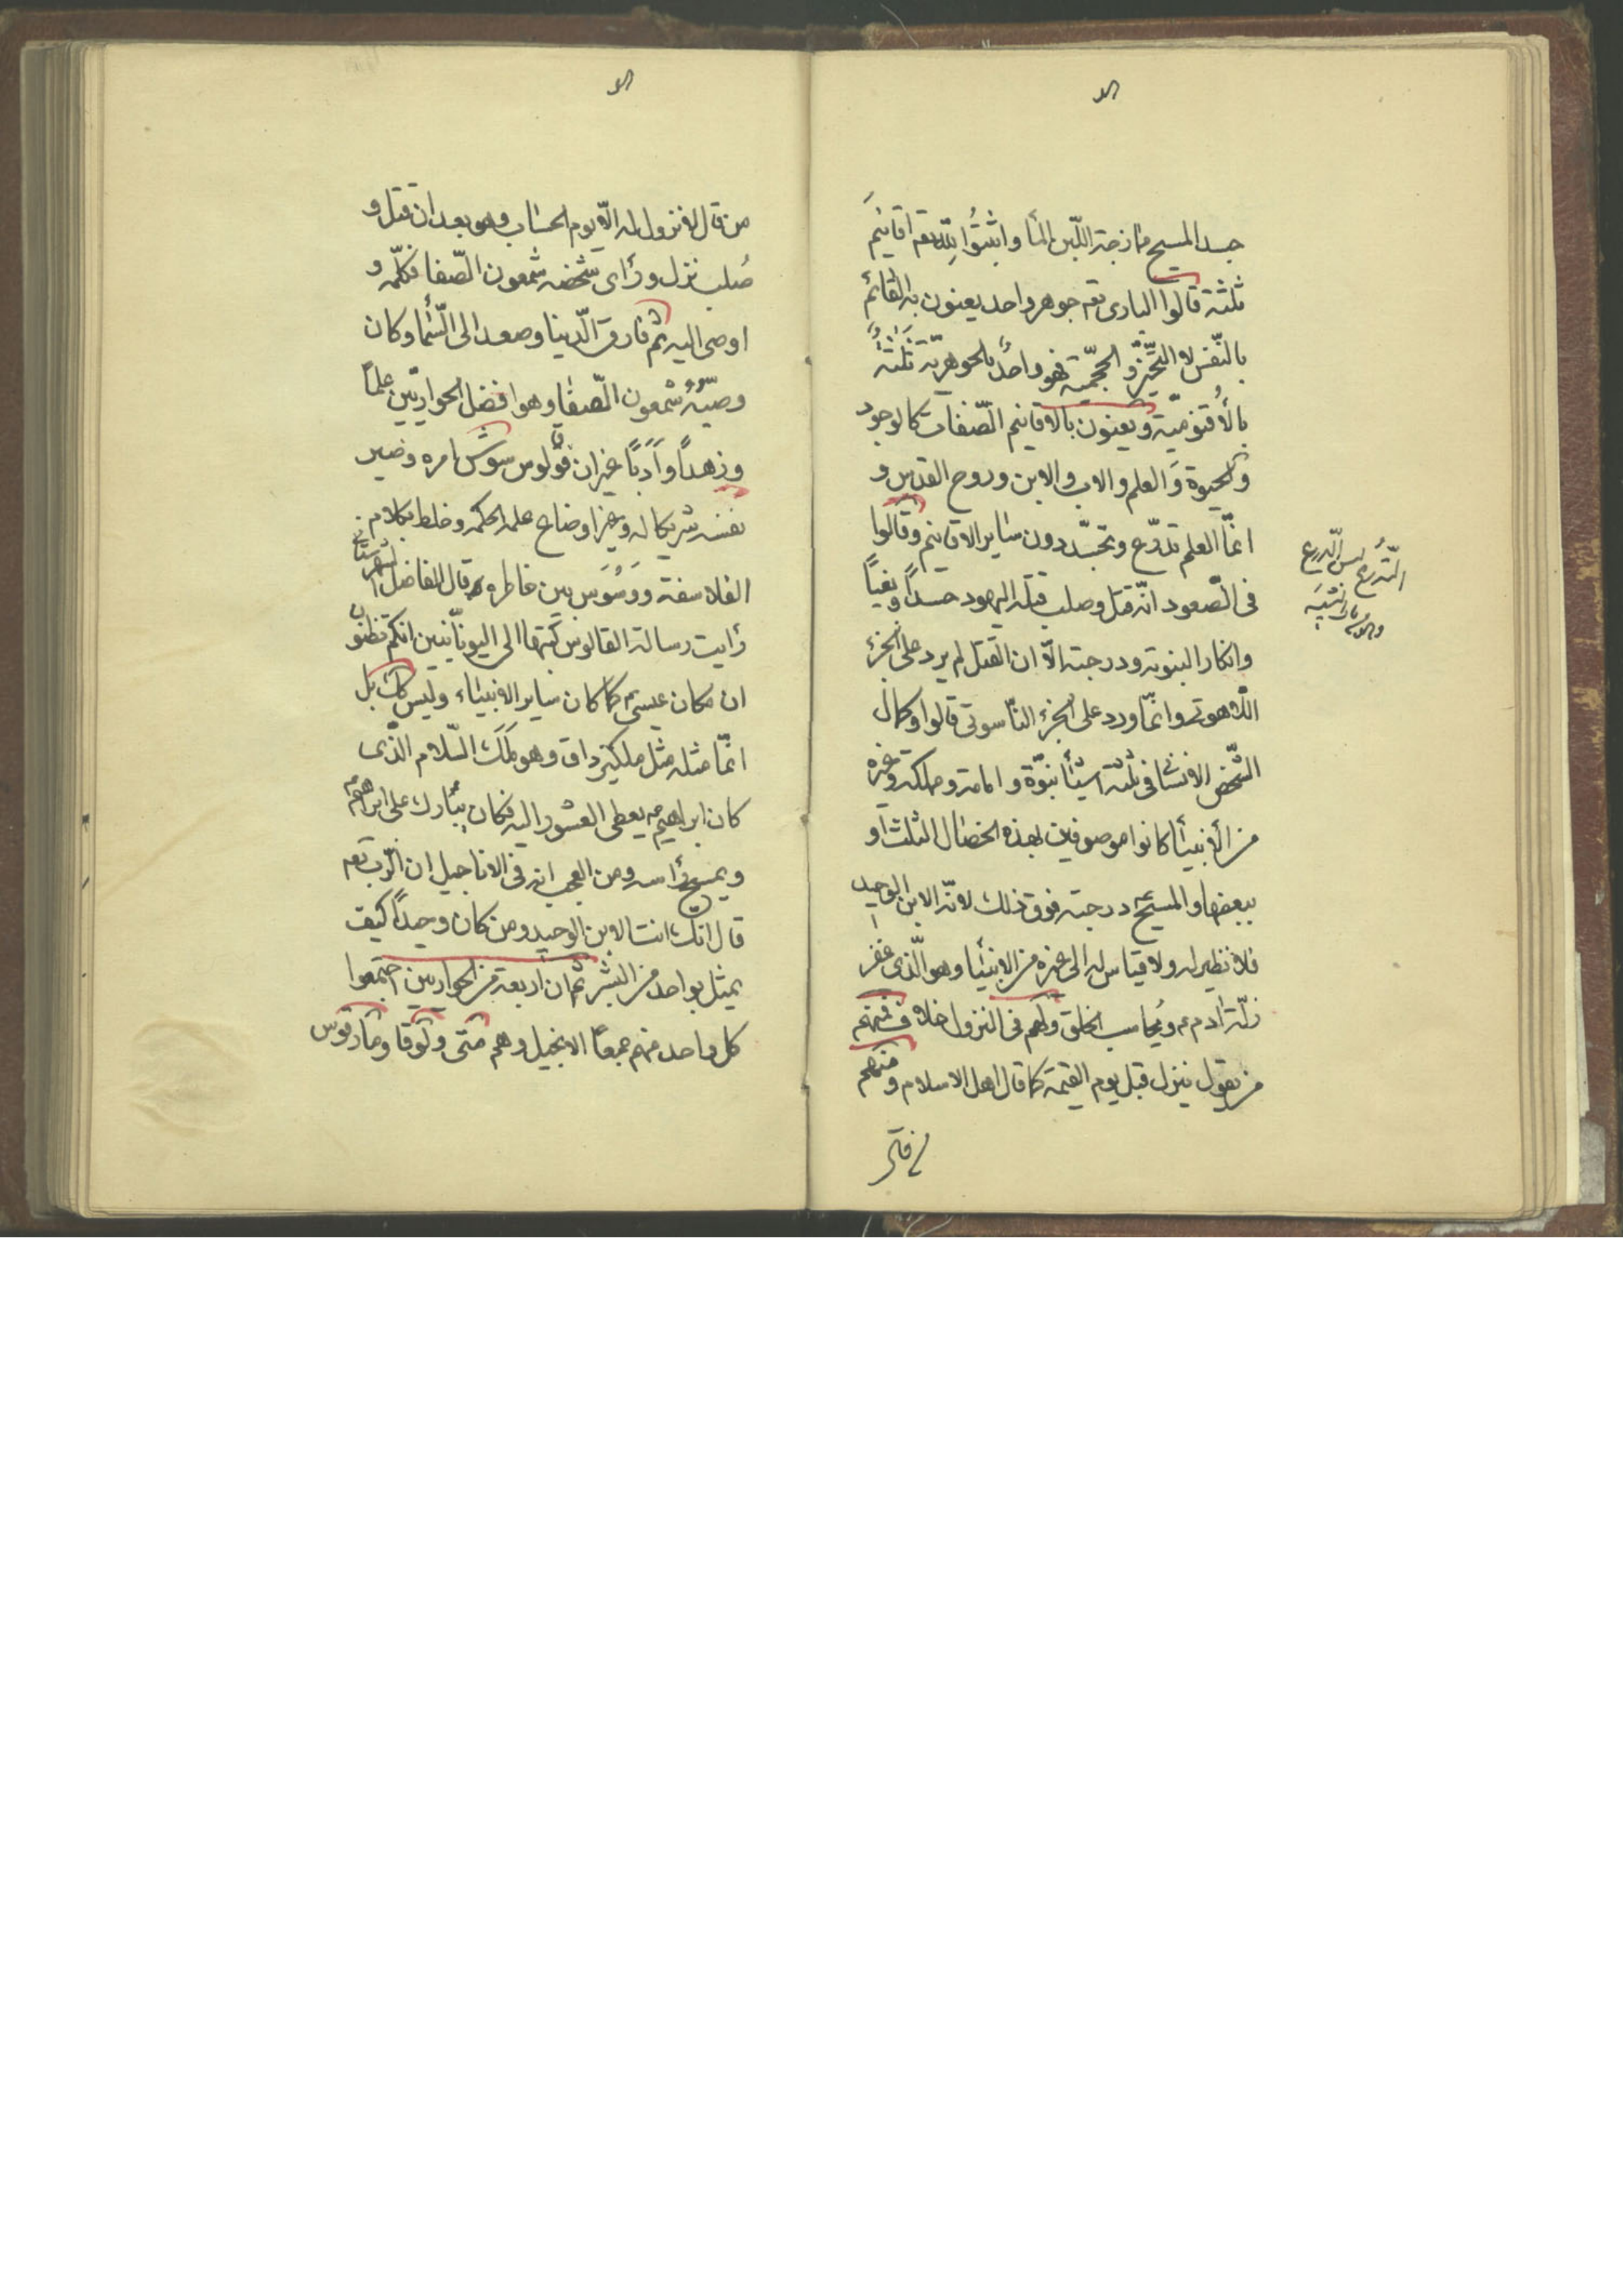 جسد المسيح ممازجة اللّبن المأ واثبتُوا لِلّه تعم اقانيمَ
ثلثة قالوا البارى تعم جوهر واحد يعنون به القائم
بالنّفس لا التّحيّز و الحجميّة فهو واحدٌ بالجوهريّة ثَلٰثةٌ
بالأُقنوميّة ويعنون بالاقانيم الصّفات كالوجود
والحيوة وَالعلم والاب والابن وروح القدس و
انمّا العلم تدرّع وتجسّد دون ساير الاقانيم وقالوا
فى الصّعود انّه قتل وصلب قتله اليهود حسداً وبغياً
وانكارا لنبوته ودرجته الّا ان القتل لم يرد على الجزء
اللاهوتى وانمّا ورد على الجزء النّاسوتى قالوا وكمال
الشّخص الانسانى فى ثلثة اشيأ نبوّة وامامة وملكة وغيره
من الأنبيأ كانوا موصوفين بهذه الخصال الثلث او
ببعضها والمسيح ع درجته فوق ذلك لانّه الابن الوحيد
فلا نظير له ولا قياس له الى غيره من الانبيأ وهو الّذى غفر
زلّة ادم ع ويُحاسب الخلق ولهم فى النزول خلاف فمنهم
من يقول ينزل قبل يوم القيمة كما قال اهل الاسلام ومنهم
التّدرع لبس الدّرع
من قال لا نزول له الّا يوم الحساب وهو بعد ان قتل و
صُلب نزل ورأى شخصه شمعون الصّفا فكلّمه و
اوصى اليه ثم فارق الّدينا وصعد الى السّمأ وكان
وصيّهُ شمعون الصّفا وهو افضل الحواريّين علماً
وزهداً وَاَدَباً غير ان فولوس شوش امره وصير
نفسه شريكا له وغير اوضاع علمه الحكمه وخلط بكلام
الفلاسفة ووَسْوَس بين خاطره قال الفاضل الشهرستانى
رأيت رسالة القالوس كتبها الى اليونانيين انكم تظنون
ان مكان عيسى ع كمكان ساير الانبياء وليس كك بل
انمّا مثله مثل ملكيزداق وهو مَلَك السّلام الذّى
كان ابراهيم ع يعطى العشور اليه فكان يُبارك على ابراهيم
ويمسح رأسه ومن العجب انه فى الاناجيل ان الرّب تعم
قال انك انت الابن الوحيد ومن كان وحيداً كيف
يمثل بواحد من البشر ثم ان اربعة من الحواريين اجتمعوا
كل واحد منهم جمعاً الانجيل وهم متى ولوقا ومارقوس